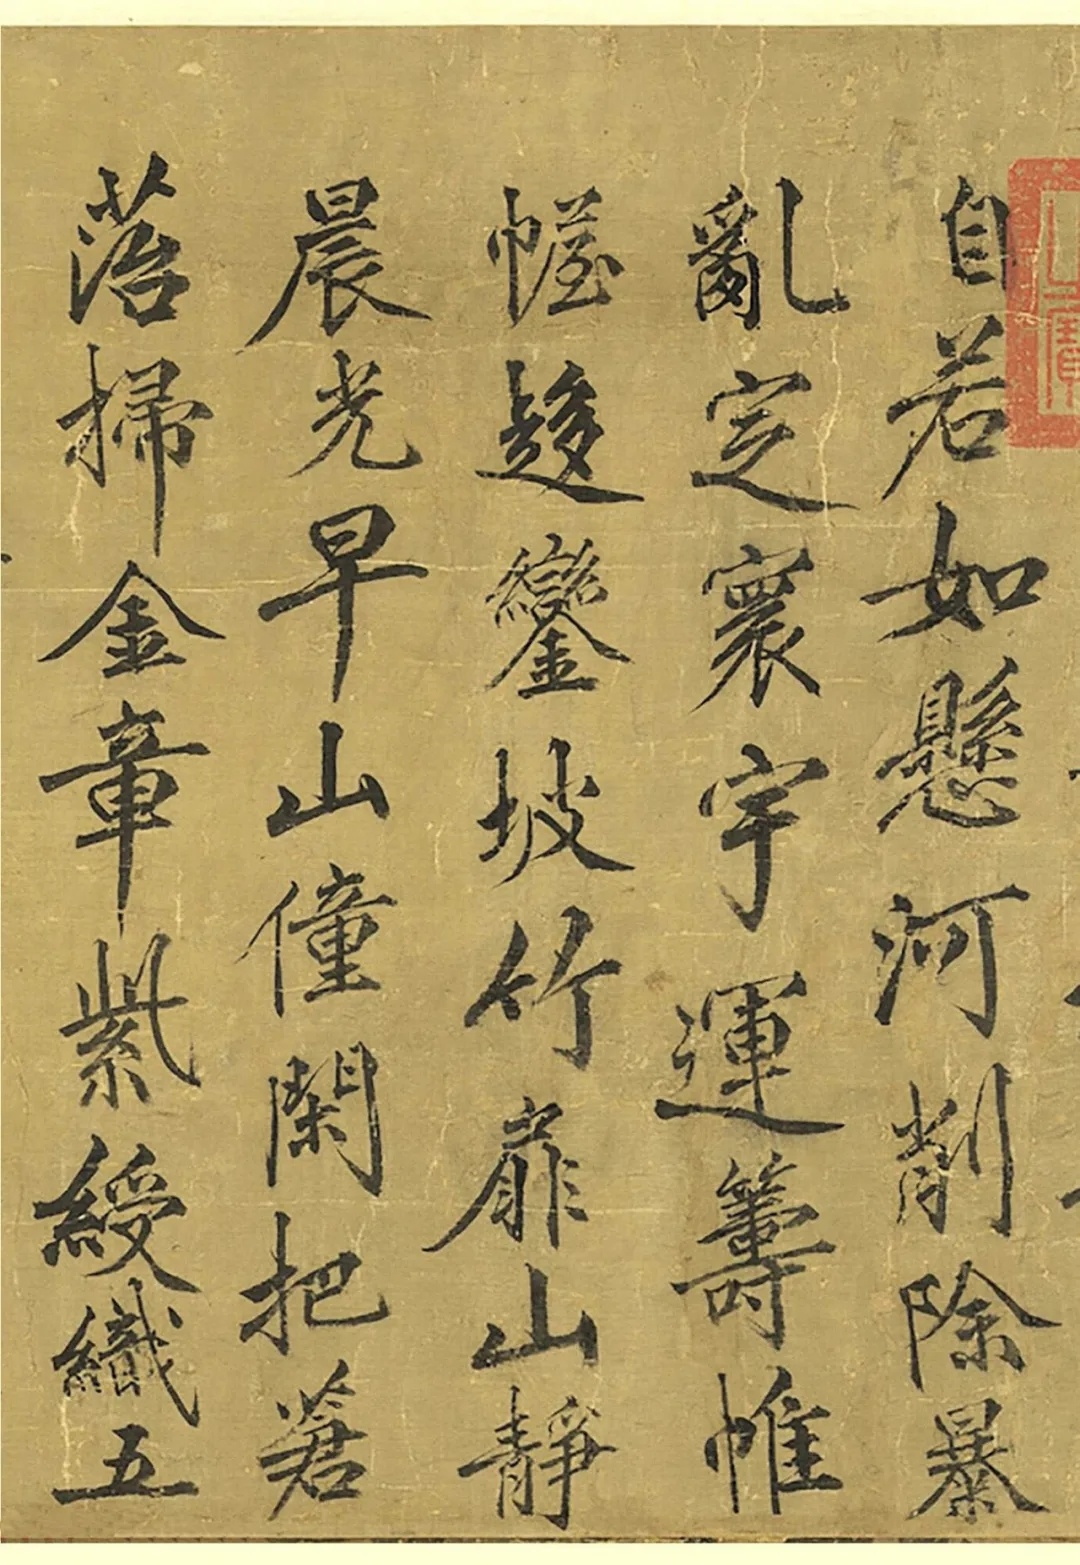 自若如懸河削除暴
亂定寰宇運籌帷
幄趍鑾坡竹扉山靜
晨光早山僮閑把箬
落掃金章紫綬織五